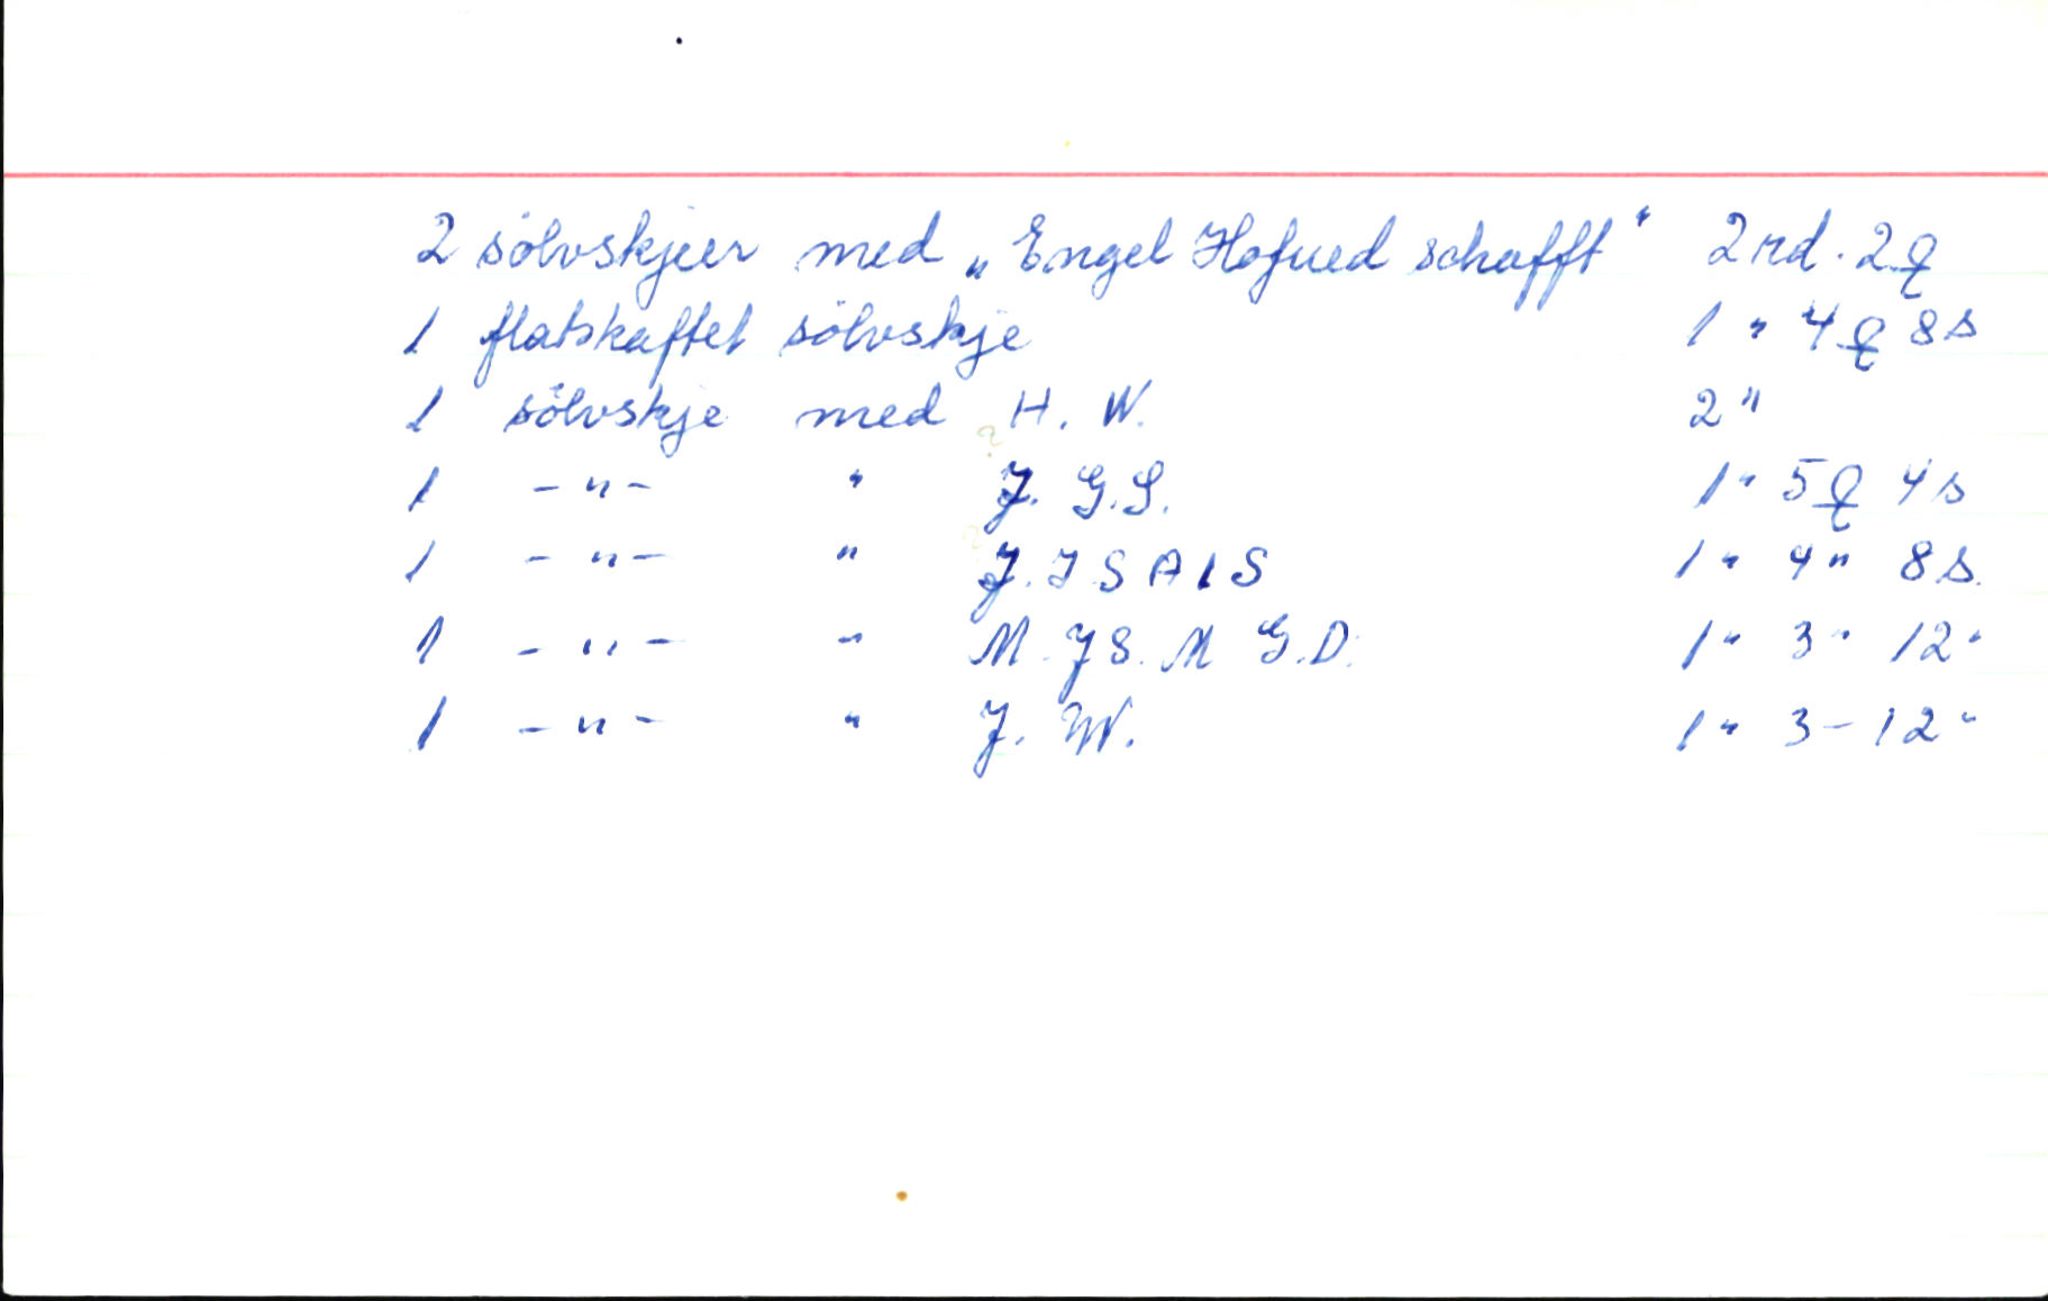 2 sölvskjeer med „Engel Hofued schafft" 2 rd. 2 q
1 flatskaftet sölvskje 1 " 4 q 8 s
1 sölvskje med H. W. 2 "
1 - " - " J. G. S. 1 " 5 q 4 s
1 - " - " J. J S A I S 1 " 4 " 8 s.
1 - " - " M. J S. M G. D. 1 " 3 " 12 "
1 - " - " J. W. 1 " 3 - 12 "